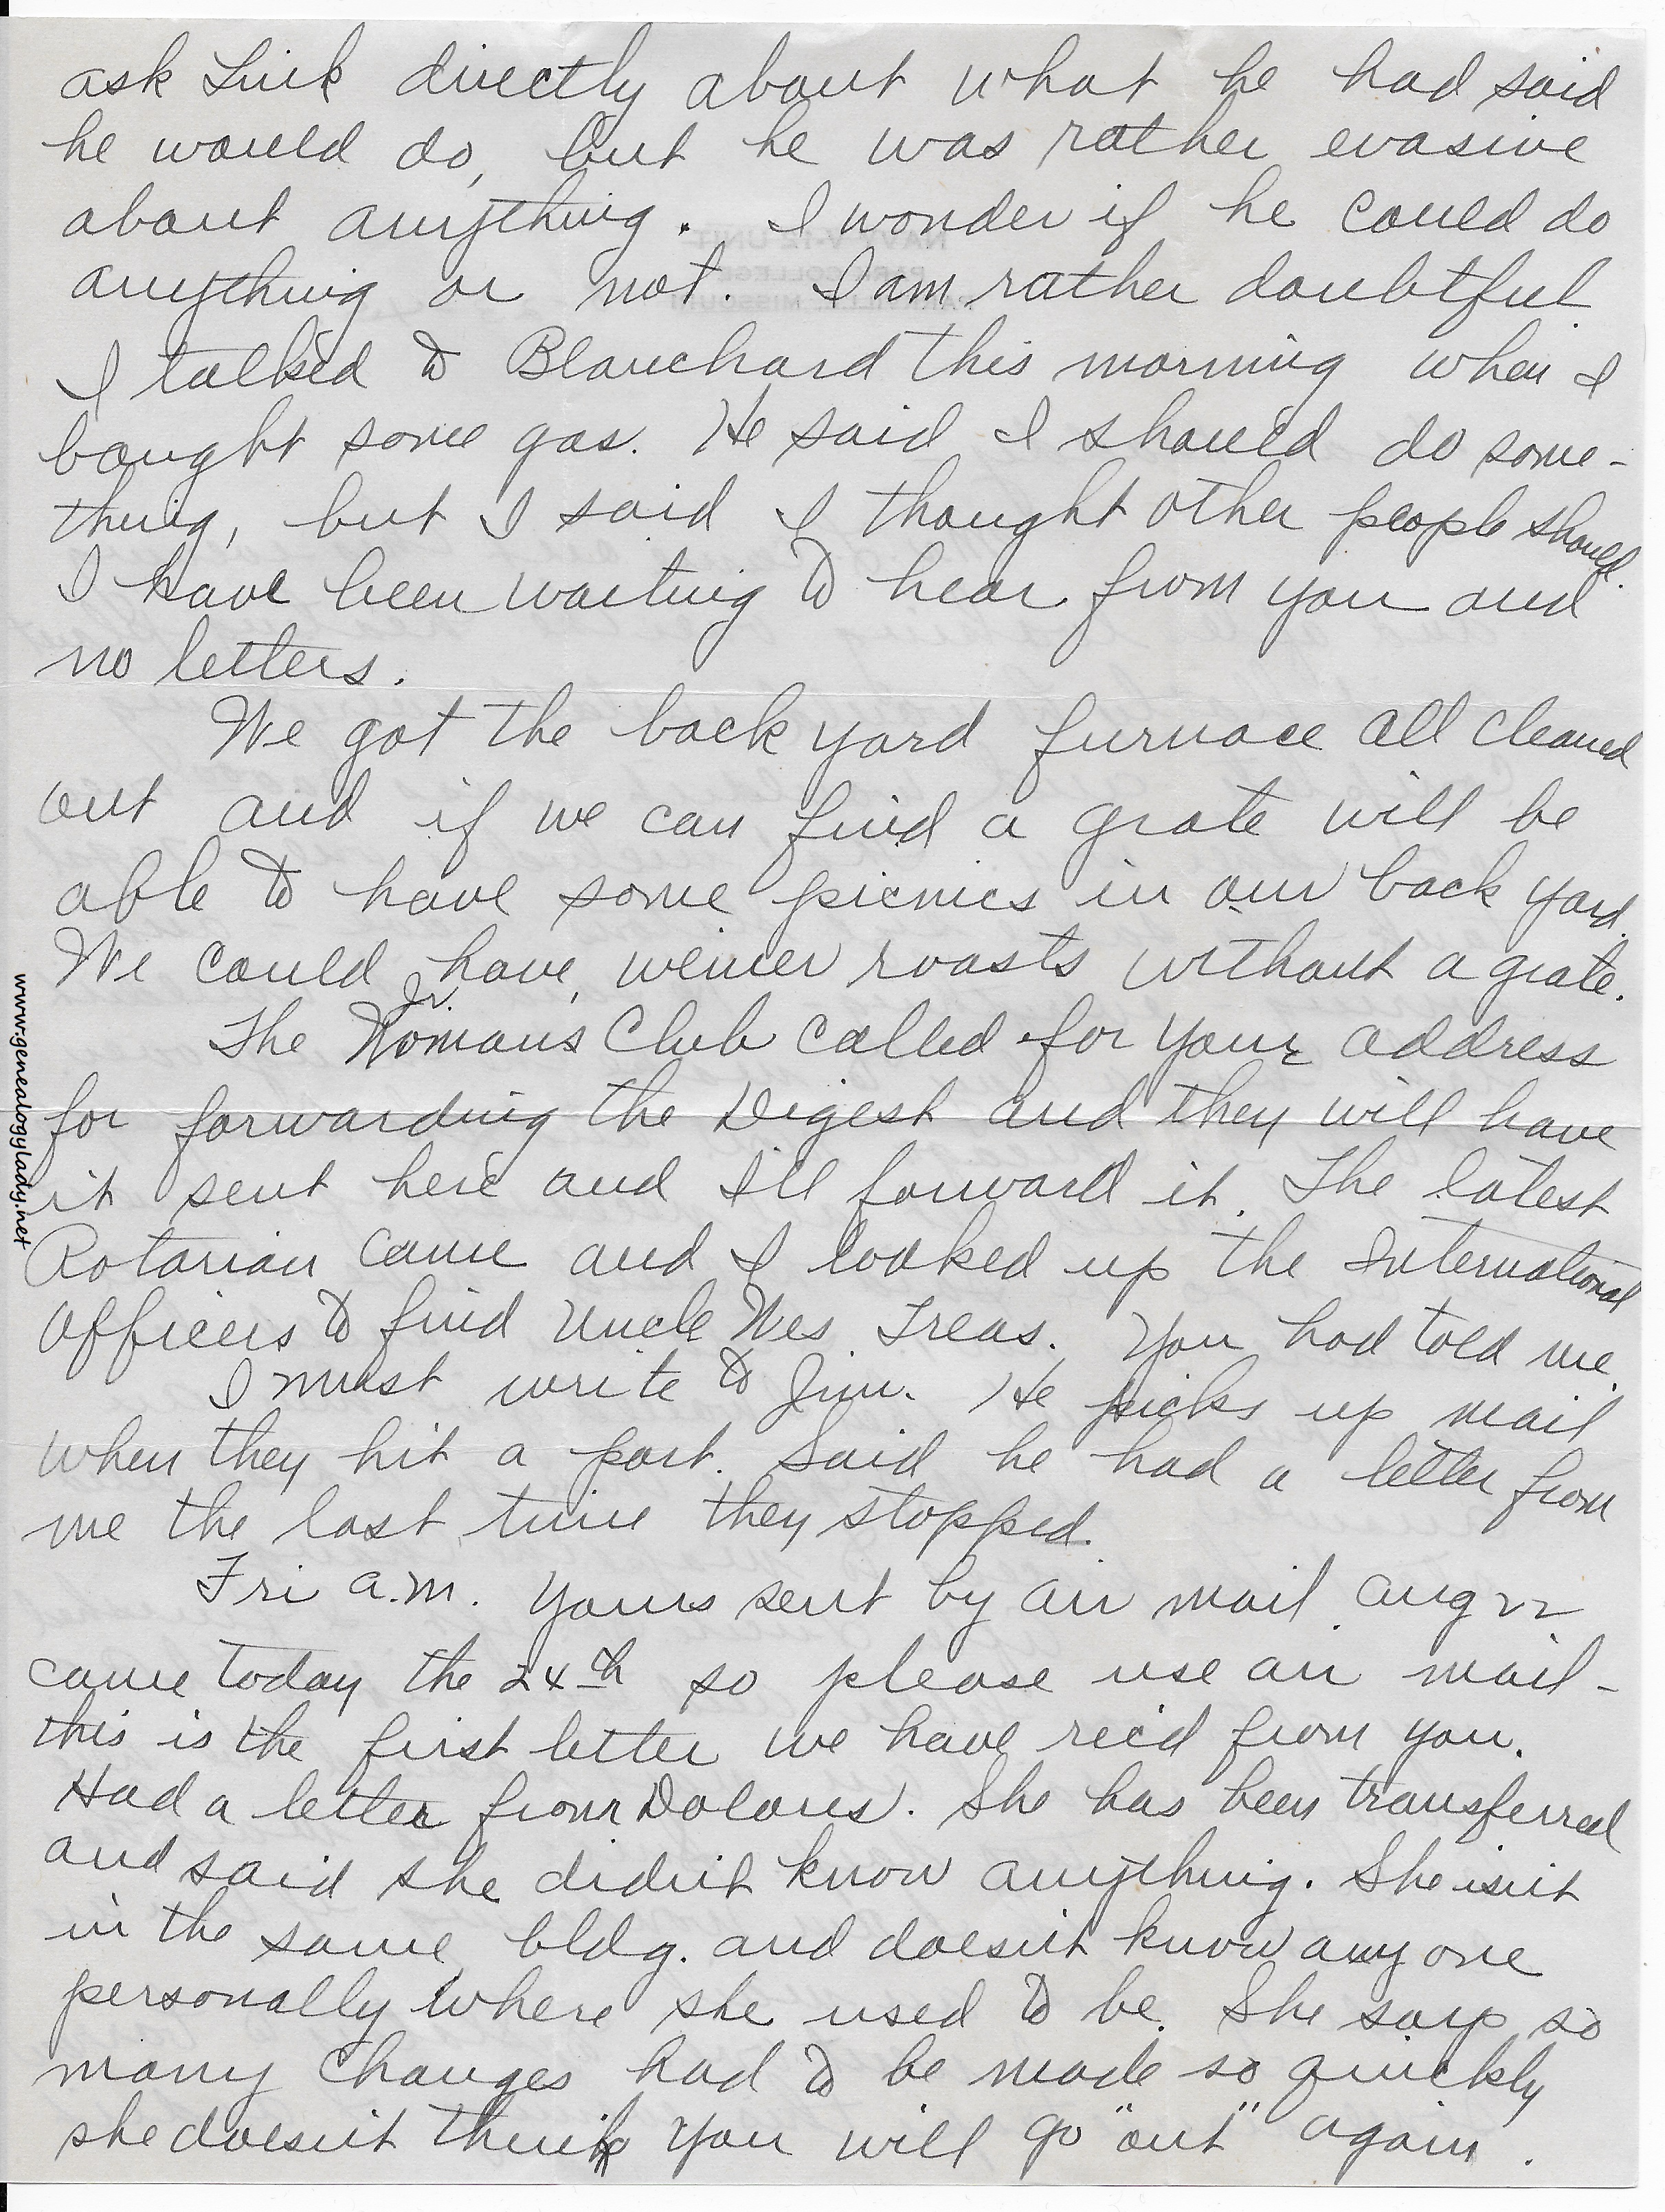 ask Link directly about what he had said
he would do, but he was rather evasive
about anything. I wonder if he could do
anything or not. I am rather doubtful
I talked to Blanchard this morning when I
bought some gas. He said I should do some-
thing, but I said I thought other people should.
I have been waiting to hear from you and
no letters.
We got the back yard furnace all cleaned
out and if we can find a grate will be
able to have some picnics in our back yard.
We could have weiner roasts without a grate.
The Jr. Womans Club called for your address
for forwarding the Digest and they will have
it sent here and I'll forward it. The latest
Rotarian came and I looked up the International
Officers to find Uncle Wes Treas. You had told me.
I must write to Jim. He picks up mail
when they hit a port. Said he had a letter from
me the last time they stopped.
Fri a.m. Yours sent by air mail Aug 22
came today the 24th so please use air mail -
this is the first letter we have rec'd from you.
Had a letter from Dolores. She has been transferred
and said she didn't know anything. She isn't
in the same bldg. and doesn't know any one
personally where she used to be. She says so
many changes had to be made so quickly
she doesn't think you will go "out" again.
www.genealogylady.net